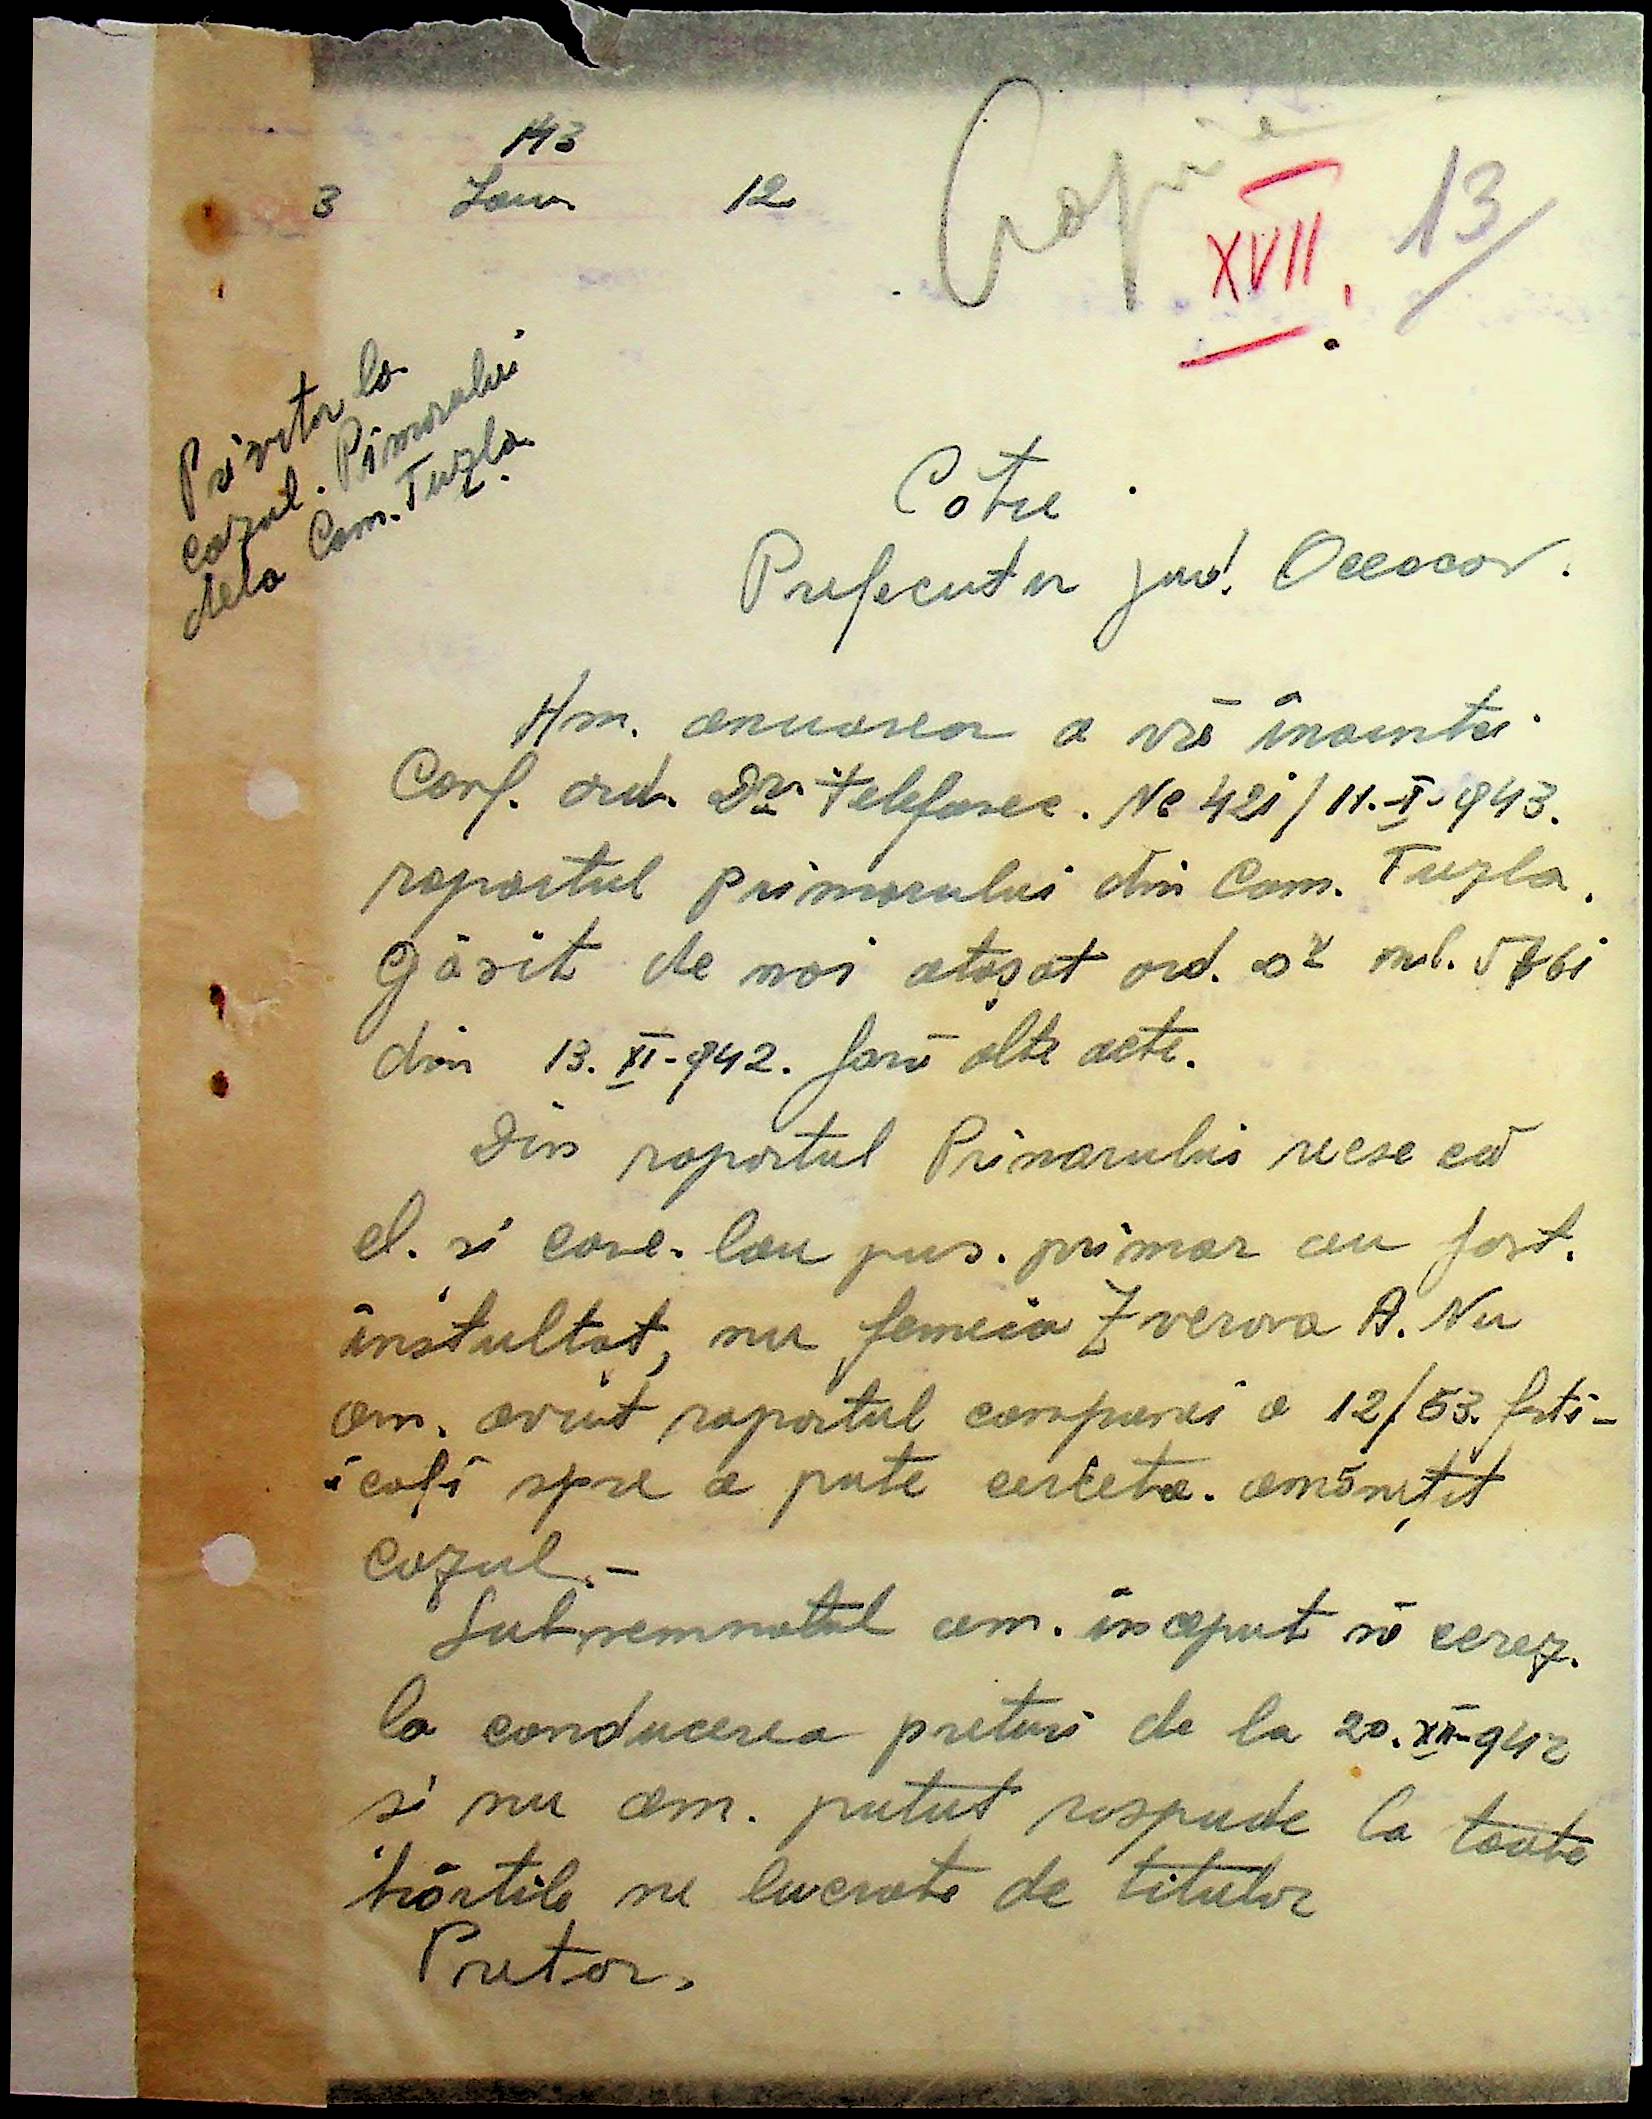 143
3 Ian. 12
Copie
XVII.
13/
Privitor la
cazul. Pimorului
dela Com. Tuzla.
Cotre
Prefecutur jud. Oceacov.
Am. onuarea a vă înainta
Conf. ord. Dv. telefonec. No 421/11.-I-943.
raportul primarului din Com. Tuzla.
Găsit de noi atașat ord. Dv
din 13. XI-942. fară alte acte.
Din raportul Primarului reese că
el. si care. lau pus. primar au fost.
instultat, nu femeia Zverova A. Nu
am. avut raportul companei a 12/53. forti-
icafi spre a pute cerceta. amănuțit
cazul.-
Subsemnatul am. început să cerez.
la conducerea preturi de la 20. XII-942
si nu am. putut răspude la toate
hârtile ne lucrate de titulor
Pretor.